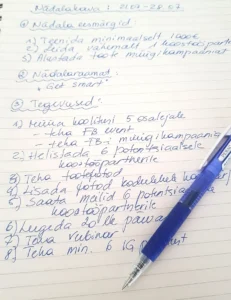 Nädalakava: 21.07-28.07
① Nädala eesmärgid
1) Teenida minimaalselt 1000€
2) Leida vähemalt 1 koostööpartner
3) Alustada toote müügikampaaniat
② Nädalaraamat
"Get smart"
③ Tegevused:
1) Müüa koolitusi 5 osalejale
- teha FB event
- teha FB-i müügikampaania
2) Helistada 6 potentsiaalsele
koostööpartnerile
3) Teha tootefotod
4) Lisada fotod kodulehele
5) Saata meilid 6 potentsiaalsele
koostööpartnerile
6) Lugeda 20 lk päevas
7) Teha vebinar
8) Teha min. 6 IG